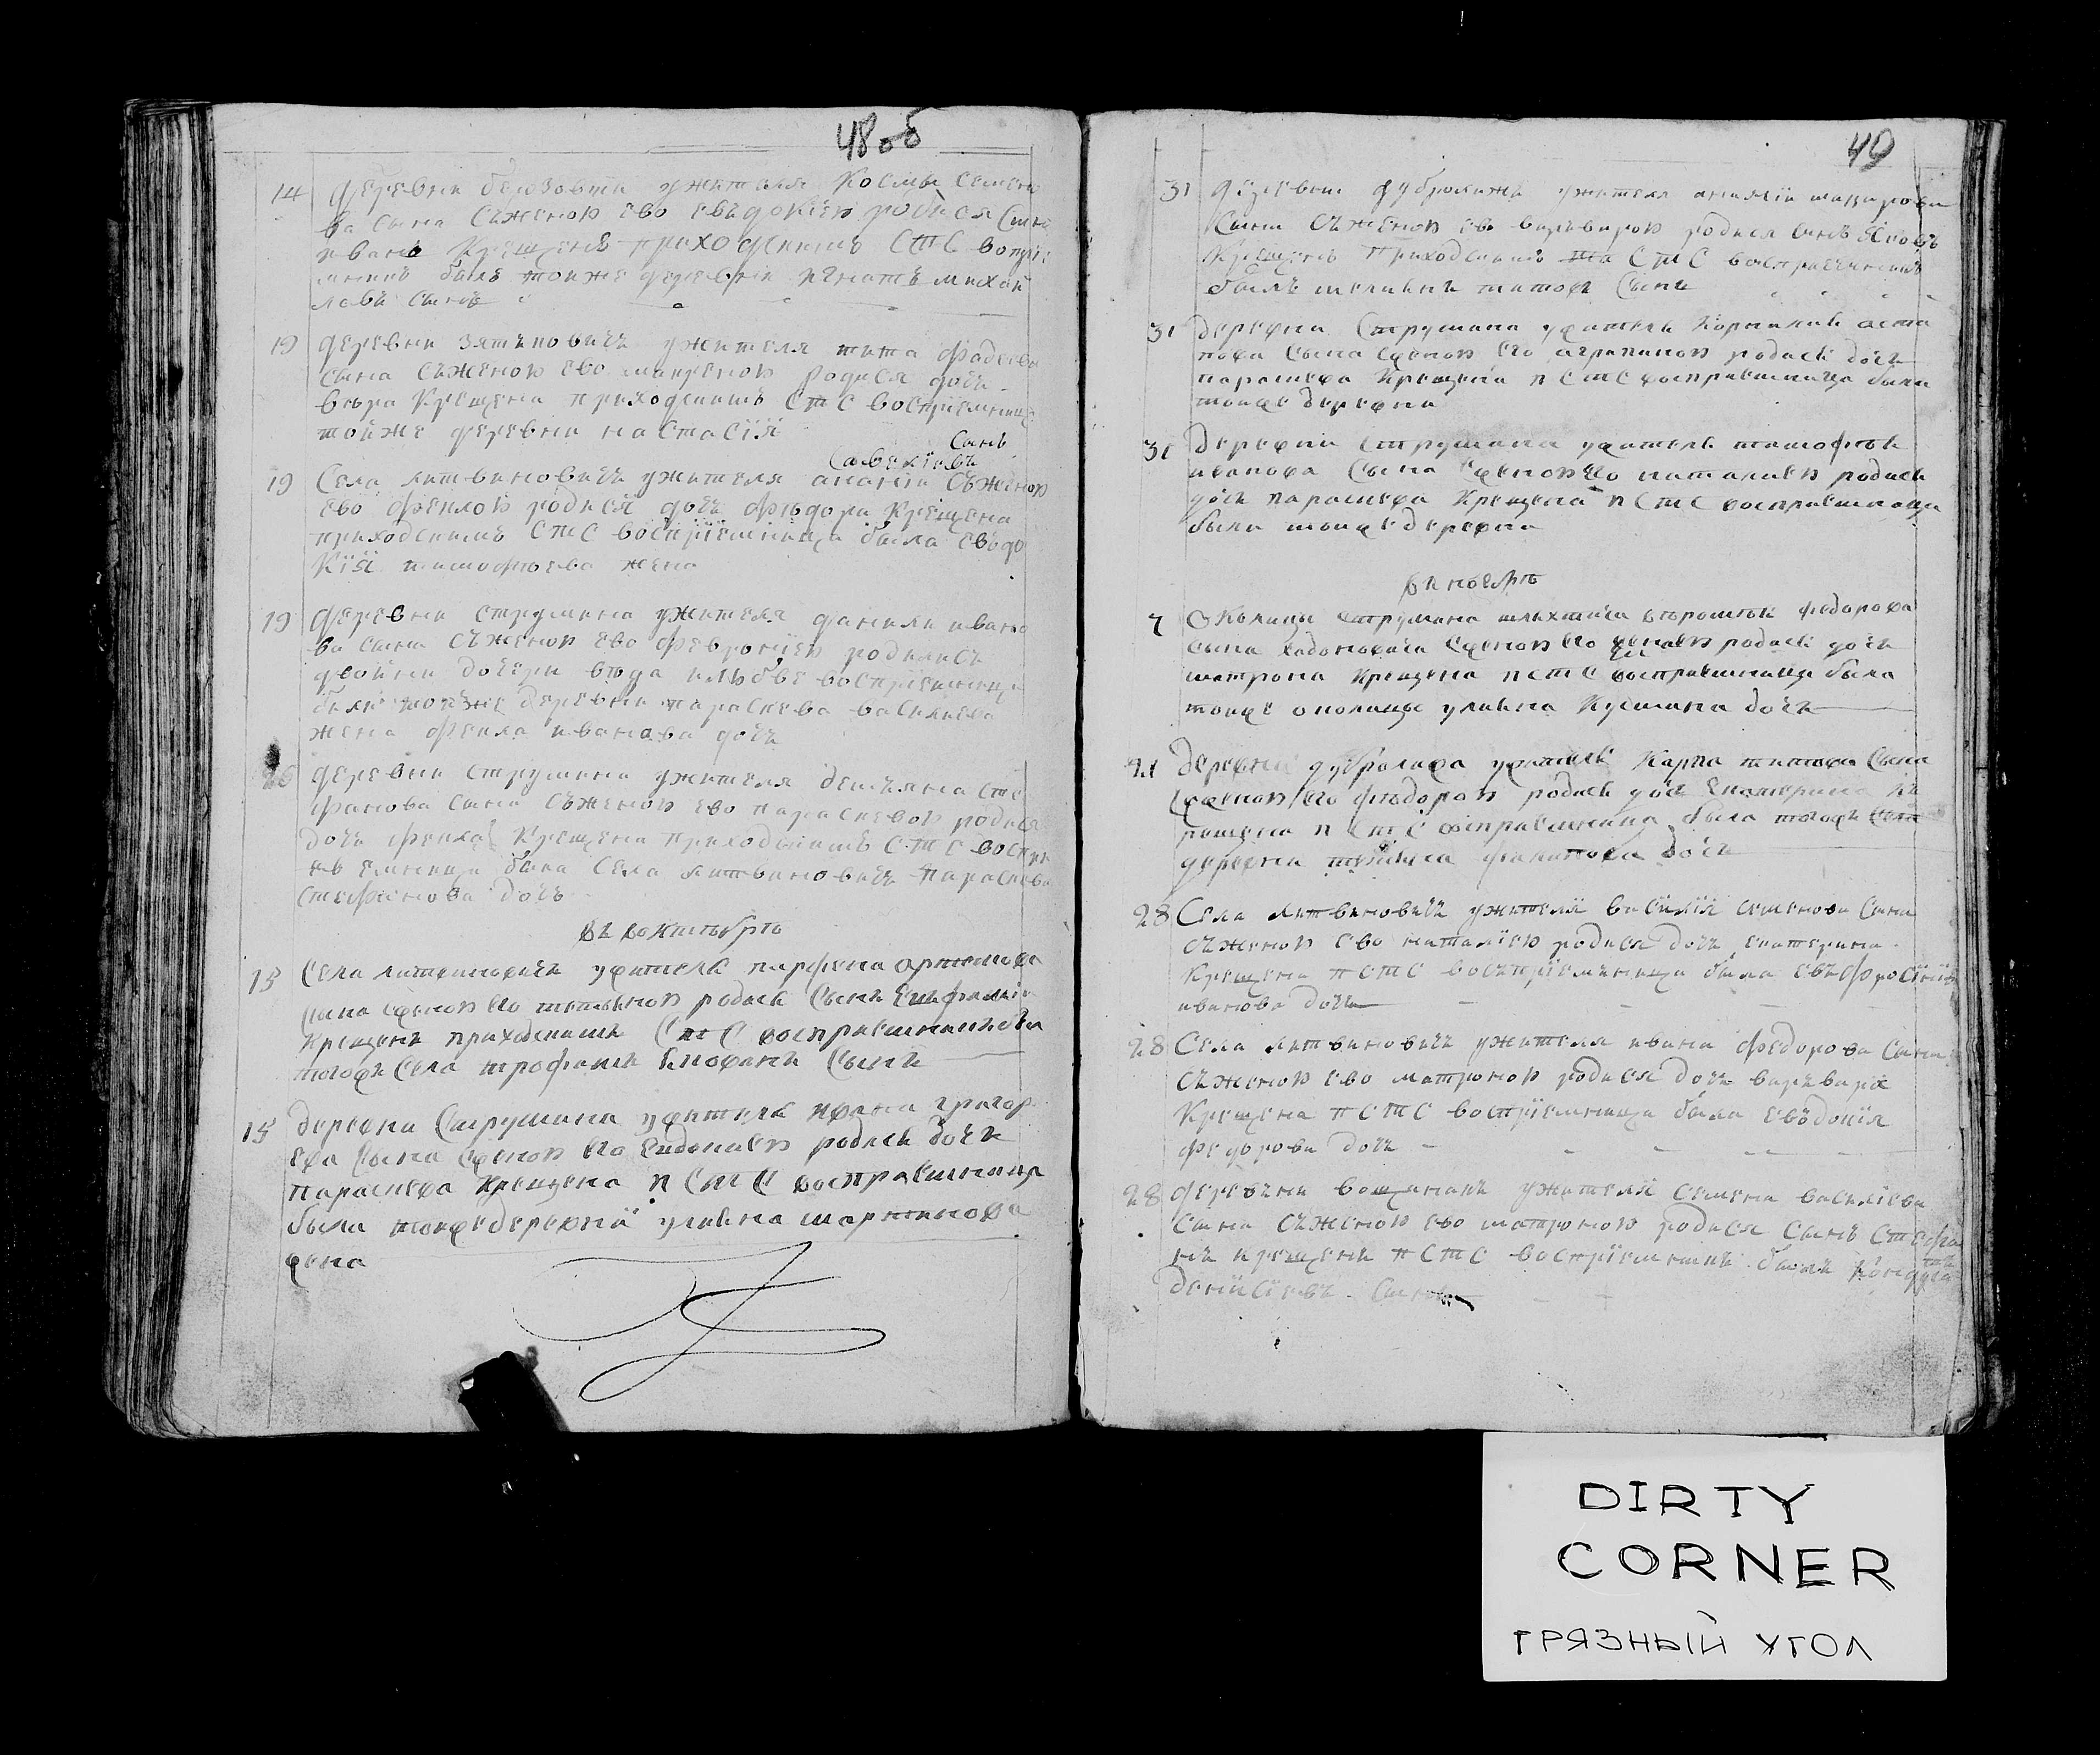 48 об
14 деревни березовти ужителя Космы Семено
ва сына съженою ево евъдокіею родился Сынъ
иванъ Крещенъ приходскимъ СТС воспріе
мникъ былъ тойже деревни игнатъ михай
ловъ сынъ
19 деревни зятьковичъ ужителя тита фадеева
сына съженою ево родися дочь
вера Крещена приходскимъ СТС воспріемница
тойже деревни настасія
Сынъ
Савеліевъ
19 Села литвиновичъ ужителя ананіи съженою
ево феклою родися дочь фїодора Крещена
приходскимъ СТС воспріемница была евъдо
кїя тимофѣева жена
19 деревни струмина ужителя данили ивано
ва сына съженою ево февроніею родились
двойни дочери воспріемницы
были тойже деревни параскева василиева
жена фекла иванова дочь
26 деревни струмина ужителя демъяна сте
фанова сына съженою ево параскевою родися
дочь фекла Крещена приходскимъ СТС воспри
емница была Села литвиновичъ параскева
стефанова дочь
въ октябрѣ
15 Села литвиновичъ ужителя парфена артемова
сына сженою его татьяною родися Сынъ
Крещенъ приходскимъ СТС восприемникъ былъ
тогожъ Села трофимъ Сынъ
15 деревни Струмина ужителя ивана григор
ева сына сженою его Евдокиею родися дочь
параскева Крещена п СТС восприемница
была тойжедеревни улияна мартинова
жена
49
31 деревни дубролижи ужителя
сына съженою ево варъварою родися сынъ Яковъ
Крещенъ приходскимъ СТС воспріемникъ
былъ титовъ Сынъ
31 деревни Струмина ужителя Корнилия оста
пова сына сженою его агрипиною родися дочь
параскева Крещена п СТС восприемница была
тойже деревни
31 деревни струмина ужителя тимофѣя
иванова сына сженою его наталиею родися
дочь параскева Крещена п СТС восприемница
была тойже деревни
в ноябрѣ
7 Околицы струмина шляхтича федорова
сына сженою его родися дочь
матрона Крещена п СТС восприемница была
тойже околицы улияна Кузмина дочь
21 деревни дубролижа ужителя Карпа титова сына
сженою его фѣодорою родися дочь Екатерина К
рещена п СТС восприемница была тоежъ
деревни филипова дочь
28 Села литвиновичъ ужителя василїя семенова сына
съженою ево наталїею родися дочь екатерина
Крещена п СТС восъпрїемъница была евъфросїнїя
иванова дочь
28 Села литвиновичъ ужителя ивана федорова сына
съженою ево матроною родися дочь варъвара
Крещена п СТС воспрїемница была евъдокїя
федорова дочь
28 деревъни вощинакъ ужителя семена василїева
сына съженою ево матроною родися сынъ стефа
нъ крещенъ п СТС воспрїемникъ былъ
денисїевъ сынъ
DIRTY
CORNER
ГРЯЗНЫЙ УГОЛ